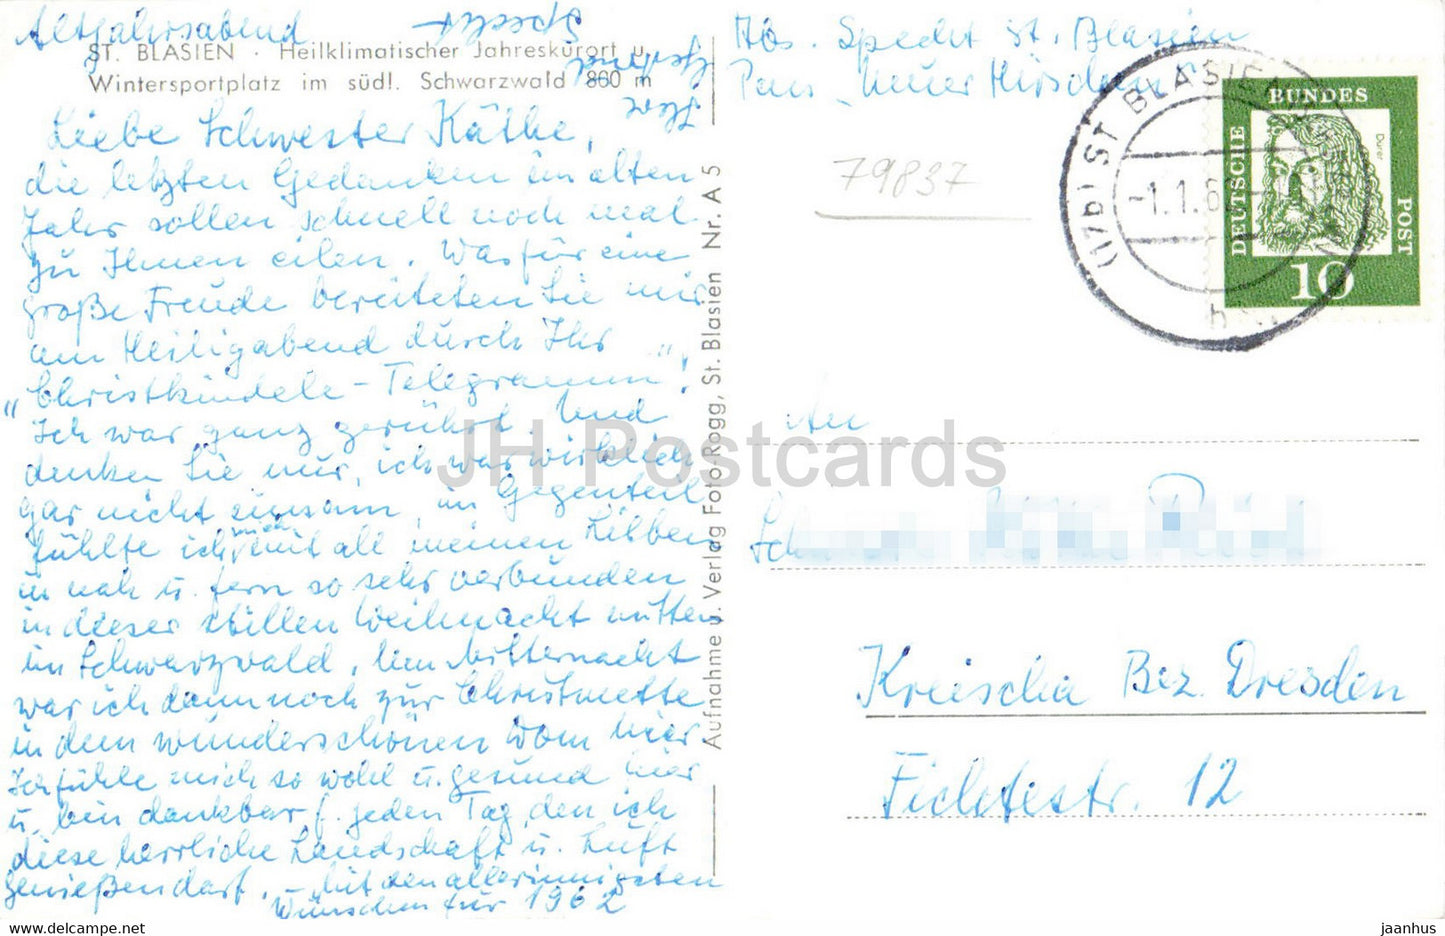 Altjahrsabend
ST. BLASIEN · Heilklimatischer Jahreskurort u.
Wintersportplatz im südl. Schwarzwald 860 m
Liebe Schwester Käthe,
die letzten Gedanken im alten
Jahr sollen schnell noch mal
zu Ihnen eilen. Was für eine
große Freude bereiteten Sie mir
am Heiligabend durch Ihr
"Christkindele-Telegramm"!
Ich war ganz gerührt. Und
denken Sie nur, ich war wirklich
gar nicht einsam, im Gegenteil
fühlte ich mich mit all meinen Lieben
in nah u. fern so sehr verbunden
in dieser stillen Weihnacht mitten
im Schwarzwald. Um Mitternacht
war ich dann noch zur Christmette
in dem wunderschönen Dom hier.
Ich fühle mich so wohl u. gesund hier
u. bin dankbar f. jeden Tag, den ich
diese herrliche Landschaft u. Luft
genießen darf. – Mit den allerinnigsten
Wünschen für 1962
Ihre
Specht
Aufnahme u. Verlag Foto-Rogg, St. Blasien Nr. A 5
Abs. Specht St. Blasien
Pens. Neuer Hirschen
79837
(17b) ST BLASIEN
-1.1.6
b
DEUTSCHE
BUNDES
POST
Dürer
10
An
Kreischa Bez. Dresden
Fichtestr. 12
JH Postcards
jaanhus
www.jhpostcard.com